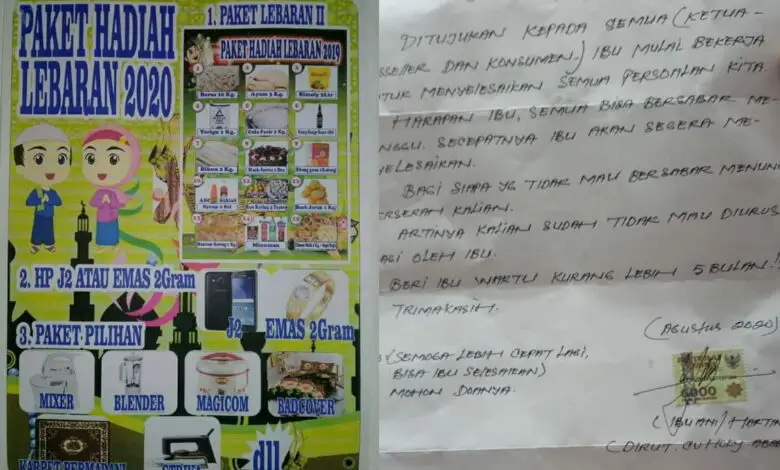 PAKET HADIAH
LEBARAN 2020
1. PAKET LEBARAN II
PAKET HADIAH LEBARAN 2019
1
2
3
Beras 10 Kg.
Ayam 2 Kg.
4
5
6
Terigu 2 Kg.
Gula Pasir 2 Kg.
7
8
9
Bihun 2 Kg.
10
11
12
13
14
15
Minuman
2. HP J2 ATAU EMAS 2Gram
J2
EMAS 2Gram
3. PAKET PILIHAN
MIXER
BLENDER
MAGICOM
BADCOVER
KARPET PERMADANI
dll
DITUJUKAN KEPADA SEMUA (KETUA-
DAN KONSUMEN.) IBU MULAI BEKERJA
MENYELESAIKAN SEMUA PERSOALAN KITA
HARAPAN IBU, SEMUA BISA BERSABAR ME-
NGGU. SECEPATNYA IBU AKAN SEGERA ME-
YELESAIKAN.
BAGI SIAPA YG TIDAK MAU BERSABAR MENUN
KALIAN.
ARTINYA KALIAN SUDAH TIDAK MAU DIURUS
AGI OLEH IBU.
BERI IBU WAKTU KURANG LEBIH 5 BULAN.
TRIMAKASIH.
(AGUSTUS 2020)
(SEMOGA LEBIH CEPAT LAGI,
BISA IBU SELESAIKAN)
MOHON DOANYA.
6000
(IBU ANI / HARTIN
(DIRUT.